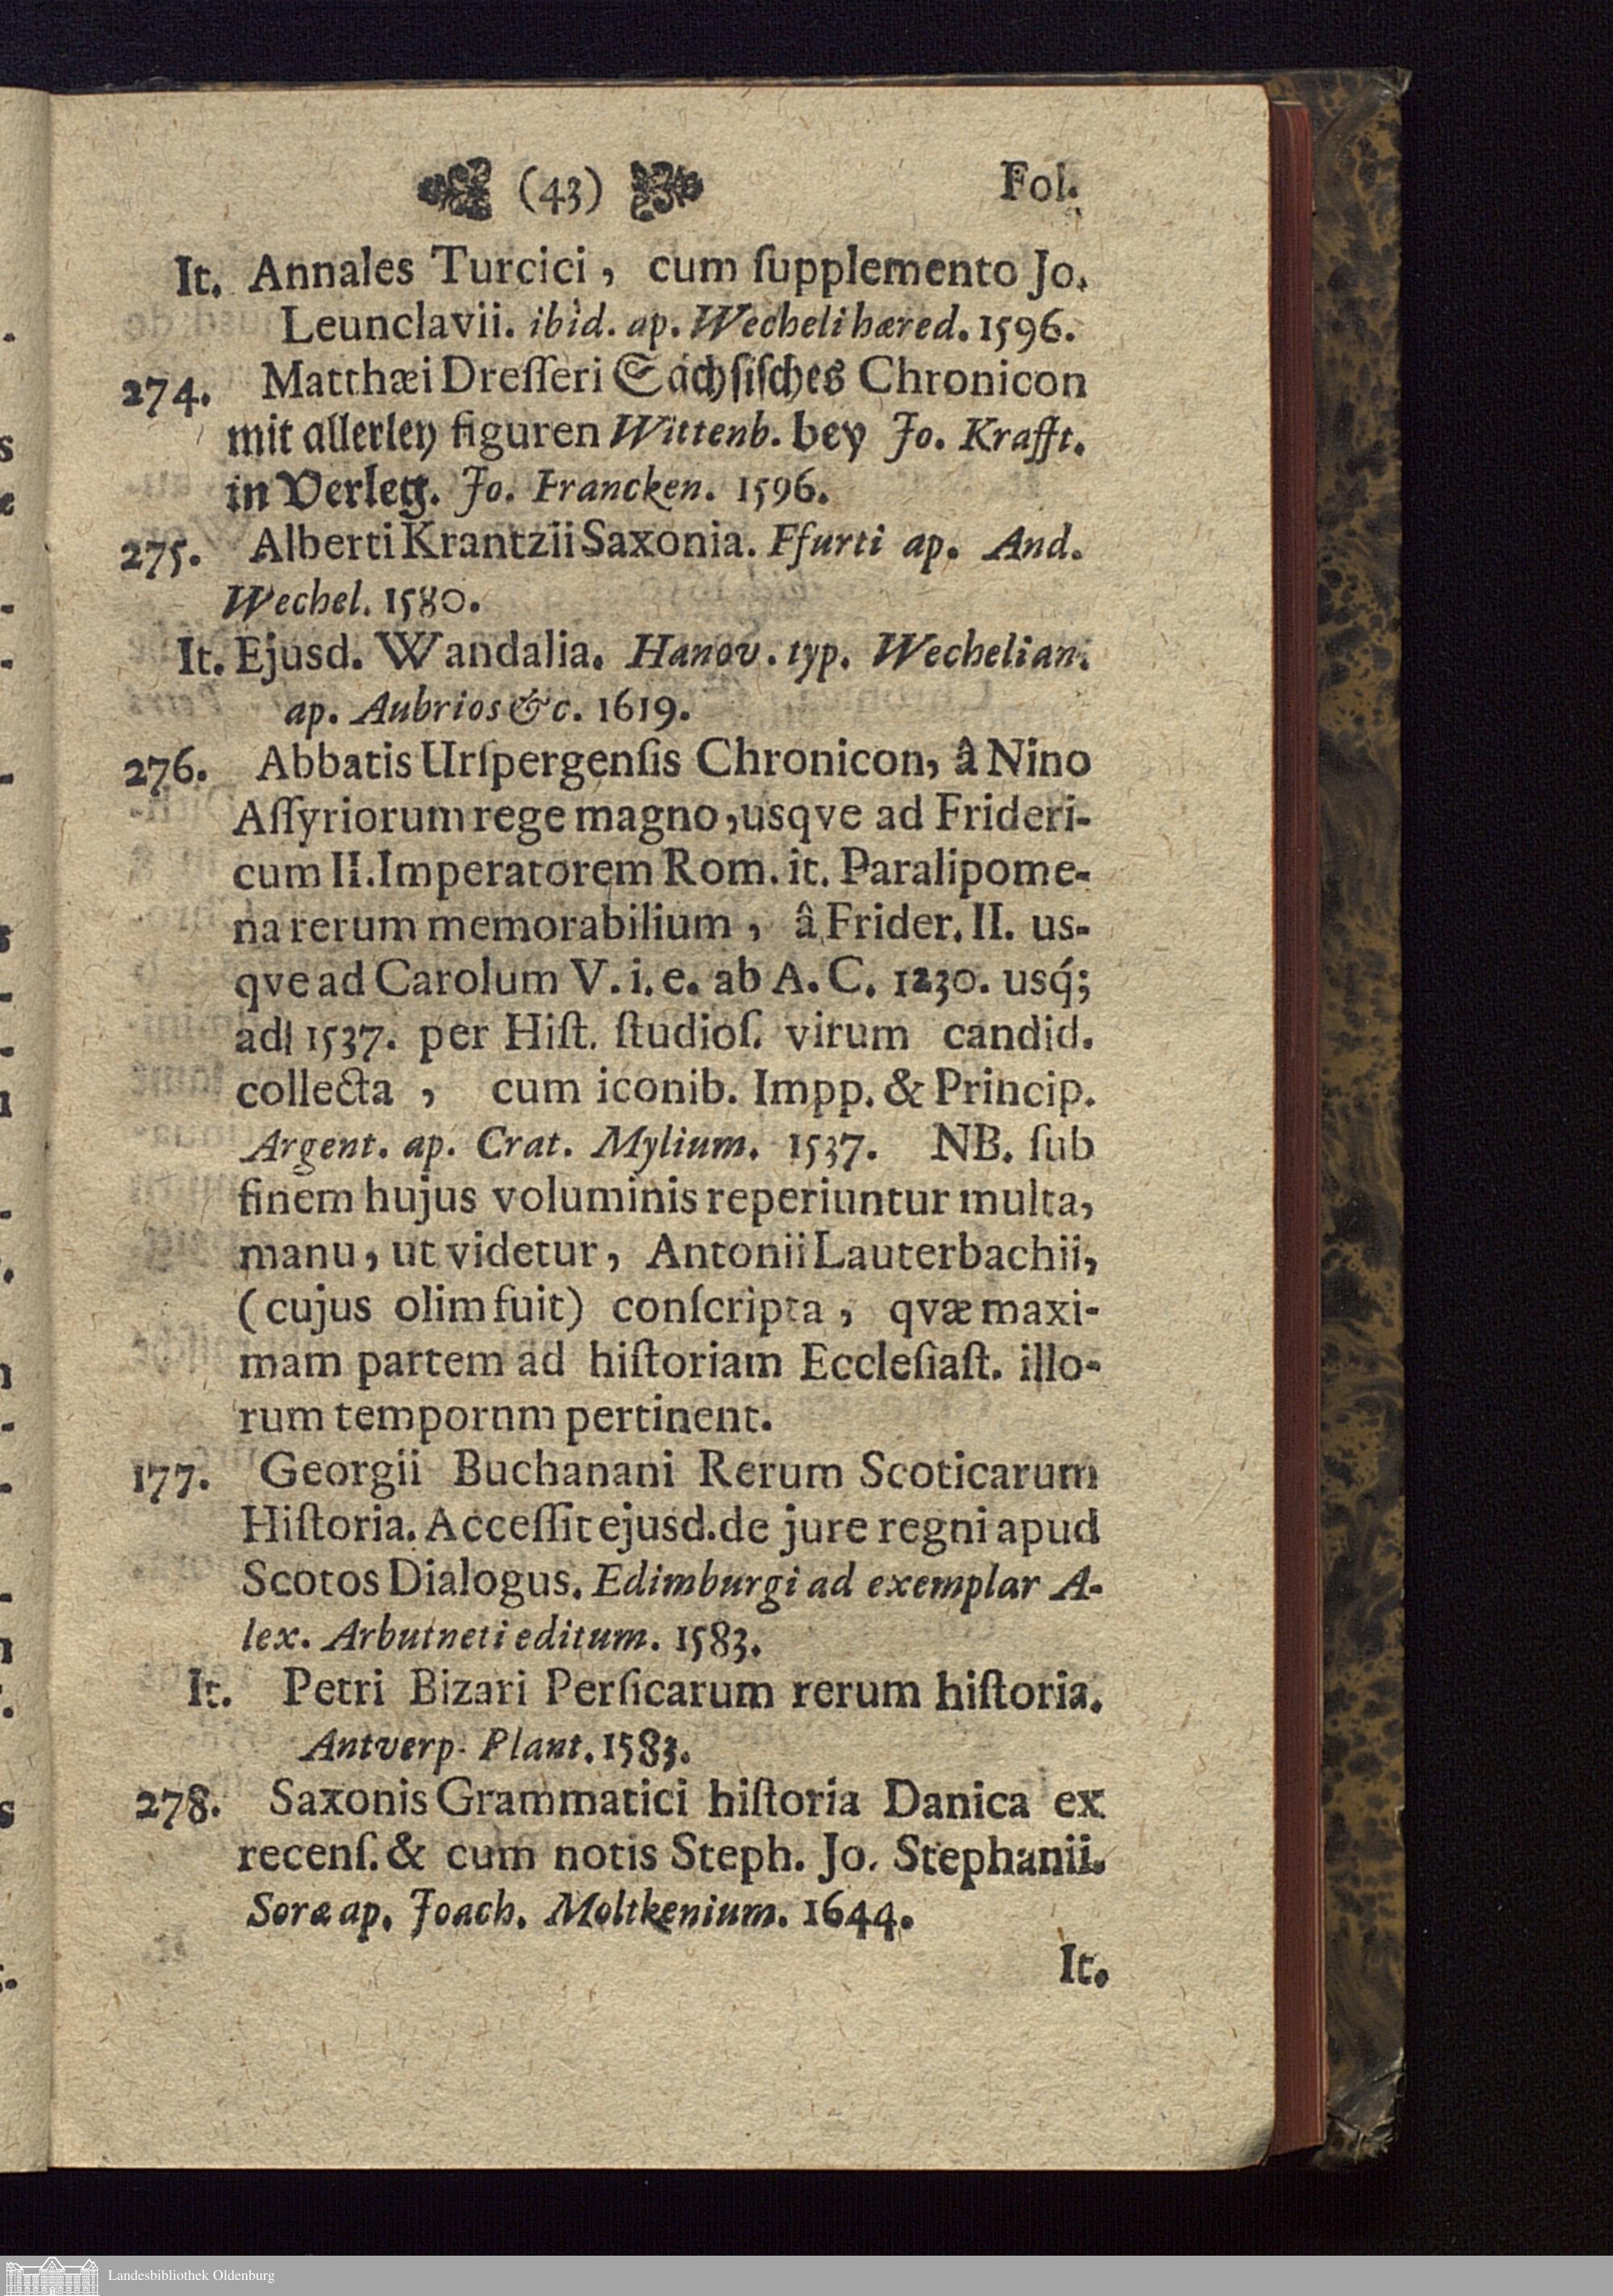 (43) Fol.
It. Annales Turcici, cum ſupplemento Jo.
Leunclavii. ibid. ap. Wecheli hæred. 1596.
274. Matthæi Dreſſeri Sächſiſches Chronicon
mit allerley figuren Wittenb. bey Jo. Krafft.
in Verleg. Jo. Francken. 1596.
275. Alberti Krantzii Saxonia. Ffurti ap. And.
Wechel. 1580.
It. Ejusd. Wandalia. Hanov. typ. Wechelian.
ap. Aubrios &c. 1619.
276. Abbatis Urſpergenſis Chronicon, â Nino
Aſſyriorum rege magno, usqve ad Frideri-
cum II. Imperatorem Rom. it. Paralipome-
na rerum memorabilium, â Frider. II. us-
qve ad Carolum V. i. e. ab A. C. 1230. usq́;
ad 1537. per Hiſt. ſtudioſ. virum candid.
collecta, cum iconib. Impp. & Princip.
Argent. ap. Crat. Mylium. 1537. NB. ſub
finem hujus voluminis reperiuntur multa,
manu, ut videtur, Antonii Lauterbachii,
(cujus olim fuit) conſcripta, qvæ maxi-
mam partem ad hiſtoriam Eccleſiaſt. illo-
rum tempornm pertinent.
177. Georgii Buchanani Rerum Scoticarum
Hiſtoria. Acceſſit ejusd. de jure regni apud
Scotos Dialogus. Edimburgi ad exemplar A-
lex. Arbutneti editum. 1583.
It. Petri Bizari Perſicarum rerum hiſtoria.
Antverp. Plant. 1583.
278. Saxonis Grammatici hiſtoria Danica ex
recenſ. & cum notis Steph. Jo. Stephanii.
Soræ ap. Joach. Moltkenium. 1644.
It.
Landesbibliothek Oldenburg